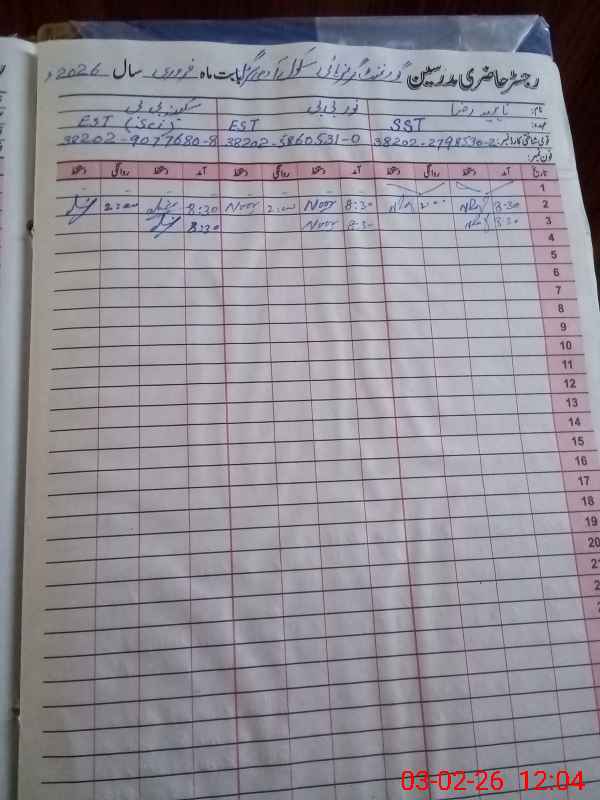 رجسٹر حاضری مدرسین گورنمنٹ گرلز ہائی سکول بابت ماہ فروری سال 2026ء
نام: ناہید رضا نور بی بی سکینہ بی بی
عہدہ: SST EST EST (Sci)
قومی شناختی کارڈ نمبر: 38202-5860531-0 38202-9077680-8
فون نمبر:
تاریخ آمد دستخط روانگی دستخط آمد دستخط روانگی دستخط آمد دستخط روانگی دستخط
1
2 8:30 2:00 8:30 Noor 2:00 Noor 8:30 2:00
3 8:30 8:30 Noor 8:30
4
5
6
7
8
9
10
11
12
13
14
15
16
17
18
19
20
03-02-26 12:04